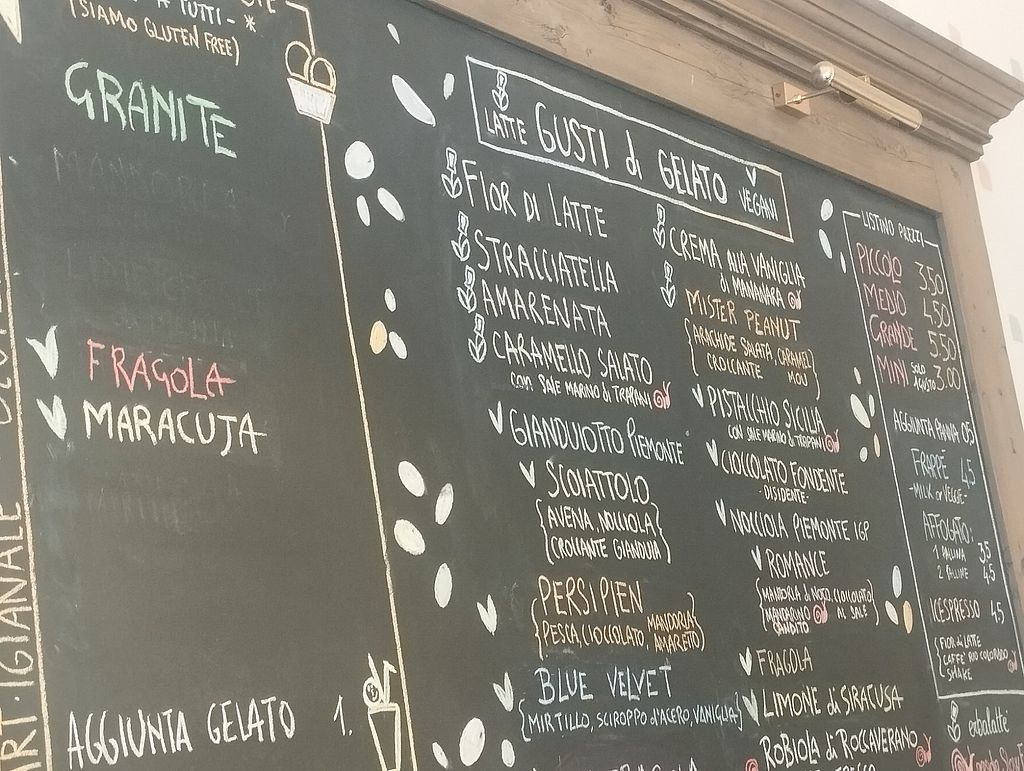 A TUTTI - *
(SIAMO GLUTEN FREE)
GRANITE
FRAGOLA
MARACUJA
AGGIUNTA GELATO 1.
LATTE GUSTI di GELATO VEGANI
FIOR DI LATTE
STRACCIATELLA
AMARENATA
CARAMELLO SALATO
CON SALE MARINO di TRAPANI
GIANDUIOTTO PIEMONTE
SCOIATTOLO
{AVENA, NOCCIOLA
{CROCCANTE GIANDUIA}
PERSIPIEN
{PESCA, CIOCCOLATO, MANDORLA
AMARETTO}
BLUE VELVET
{MIRTILLO, SCIROPPO d'ACERO, VANIGLIA}
CREMA ALLA VANIGLIA
di MANANARA
MISTER PEANUT
{ARACHIDE SALATA, CARAMEL
CROCCANTE MOU}
PISTACCHIO SICILIA
CON SALE MARINO di TRAPPANI
CIOCCOLATO FONDENTE
- DISIDENTE -
NOCCIOLA PIEMONTE IGP
ROMANCE
{MANDORLA di NOTO, CIOCCOLATO
MANDARINO AL SALE
CANDITO
FRAGOLA
LIMONE di SIRACUSA
ROBIOLA di ROCCAVERANO
LISTINO PREZZI
PICCOLO 3,50
MEDIO 4,50
GRANDE 5,50
MINI SOLO AGOSTO 3,00
AGGIUNTA PANNA 0,5
FRAPPÈ 4,5
- MILK or VEGGIE -
AFFOGATO:
1 PALLINA 3,5
2 PALLINE 4,5
ICESPRESSO 4,5
{FIOR di LATTE
CAFFÈ RIO COLORADO
SHAKE